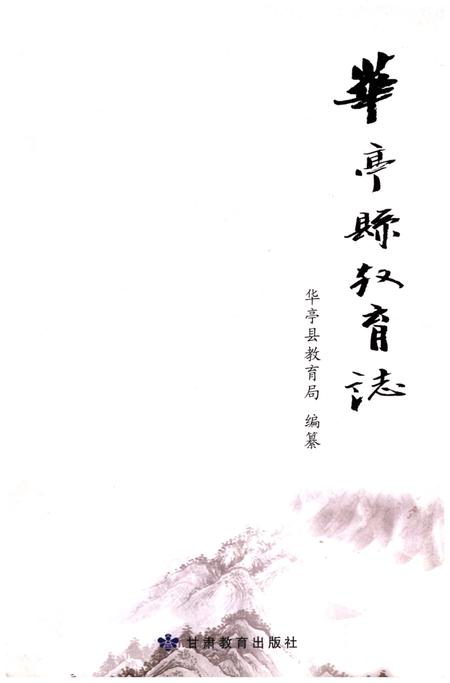 華亭縣教育誌
华亭县教育局 编纂
甘肃教育出版社